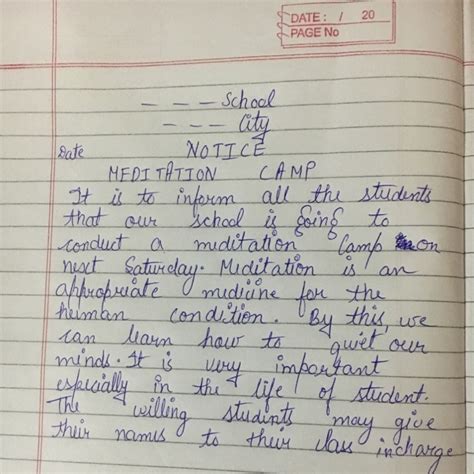 DATE: / 20
PAGE No
- - - School
- - - City
Date NOTICE
MEDITATION CAMP
It is to inform all the students
that our school is going to
conduct a meditation Camp on
next Saturday. Meditation is an
appropriate medicine for the
human condition. By this, we
can learn how to quiet our
minds. It is very important
especially in the life of student.
The willing students may give
their names to their class incharge